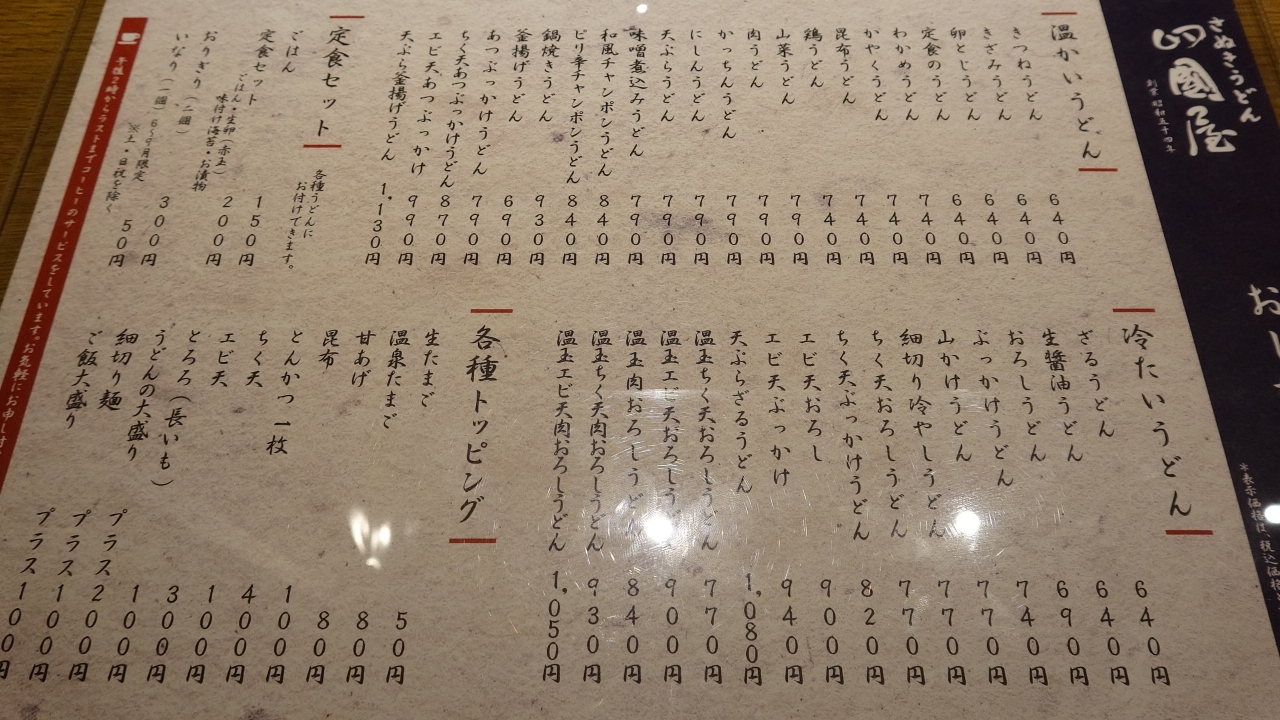 さぬきうどん
四國屋
創業昭和五十四年
温かいうどん
きつねうどん 640円
きざみうどん 640円
卵とじうどん 640円
定食のうどん 640円
わかめうどん 740円
かやくうどん 740円
昆布うどん 740円
鶏うどん 740円
山菜うどん 790円
肉うどん 790円
かっちんうどん 790円
にしんうどん 790円
天ぷらうどん 790円
味噌煮込みうどん 790円
和風チャンポンうどん 840円
ピリ辛チャンポンうどん 840円
鍋焼きうどん 930円
釜揚げうどん 690円
あつぶっかけうどん 790円
ちく天あつぶっかけうどん 870円
エビ天あつぶっかけ 990円
天ぷら釜揚げうどん 1,130円
定食セット
各種うどんに
お付けできます。
ごはん 150円
定食セット 200円
ごはん・生卵(赤玉)
味付け海苔・お漬物
おにぎり(二個) 300円
いなり(一個) 50円
6~9月限定
※土・日祝を除く
午後2時からラストまでコーヒーのサービスをしています。お気軽にお申し付
冷たいうどん
ざるうどん 640円
生醤油うどん 640円
おろしうどん 690円
ぶっかけうどん 740円
山かけうどん 770円
細切り冷やしうどん 770円
ちく天おろしうどん 770円
ちく天ぶっかけうどん 820円
エビ天おろし 900円
エビ天ぶっかけ 940円
天ぷらざるうどん 1,080円
温玉ちく天おろしうどん 770円
温玉エビ天おろしうどん 900円
温玉肉おろしうどん 840円
温玉ちく天肉おろしうどん 930円
温玉エビ天肉おろしうどん 1,050円
各種トッピング
生たまご 50円
温泉たまご 80円
甘あげ 80円
昆布 100円
とんかつ一枚 400円
ちく天 100円
エビ天 300円
とろろ(長いも) 100円
うどんの大盛り プラス 200円
細切り麺 プラス 100円
ご飯大盛り プラス 100円
*表示価格は、税込価格